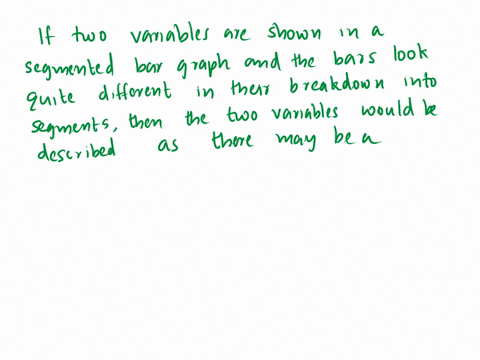 If two variables are shown in a
segmented bar graph and the bars look
quite different in their breakdown into
segments, then the two variables would be
described as there may be a